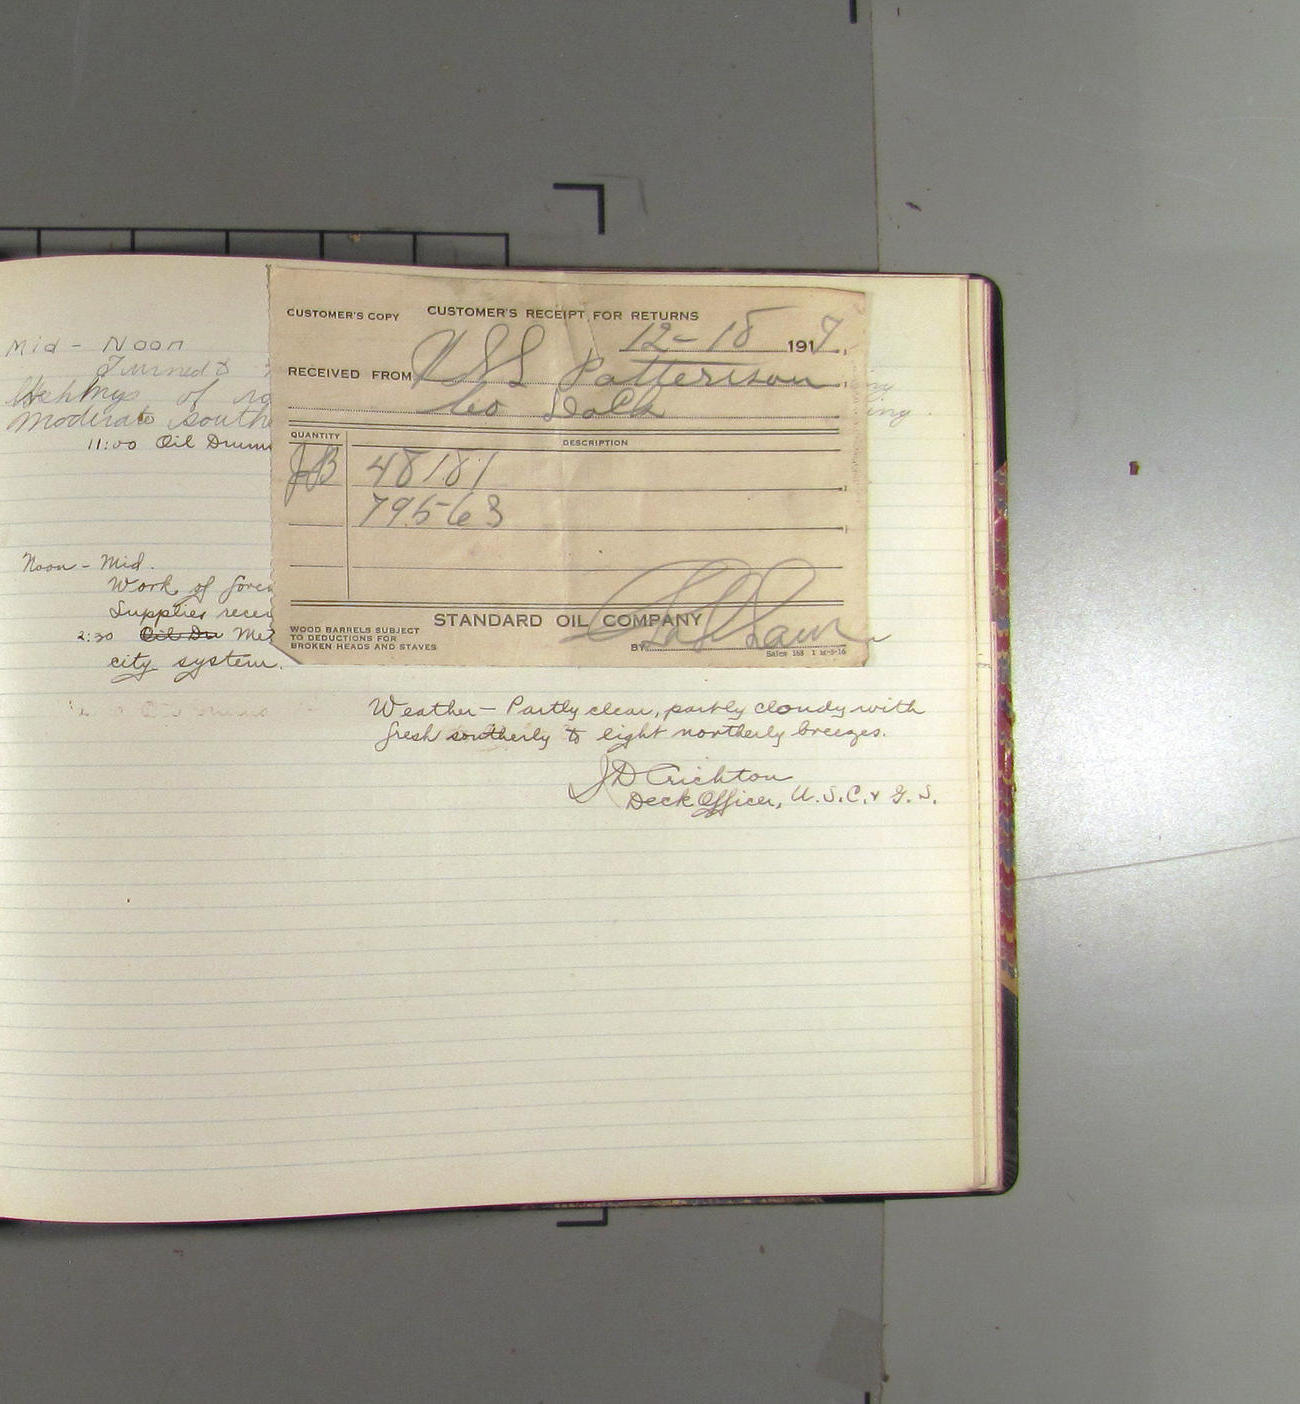 Mid - Noon
Turned to
of
Moderate South
11:00 Oil Drum
ing
ing.
CUSTOMER'S COPY CUSTOMER'S RECEIPT FOR RETURNS
12-18 1917.
RECEIVED FROM U S S Patterson
Co Dock
QUANTITY DESCRIPTION
JB 48181
79563
STANDARD OIL COMPANY
WOOD BARRELS SUBJECT
TO DEDUCTIONS FOR
BROKEN HEADS AND STAVES
BY
Sales 168 1 M-5-16
Noon - Mid.
Work of foren
Supplies recei
2:30 Oil Dr Me
city system.
Weather - Partly clear, partly cloudy with
fresh southerly to light northerly breezes.
J D Crichton
Deck Officer, U.S.C. & G.S.